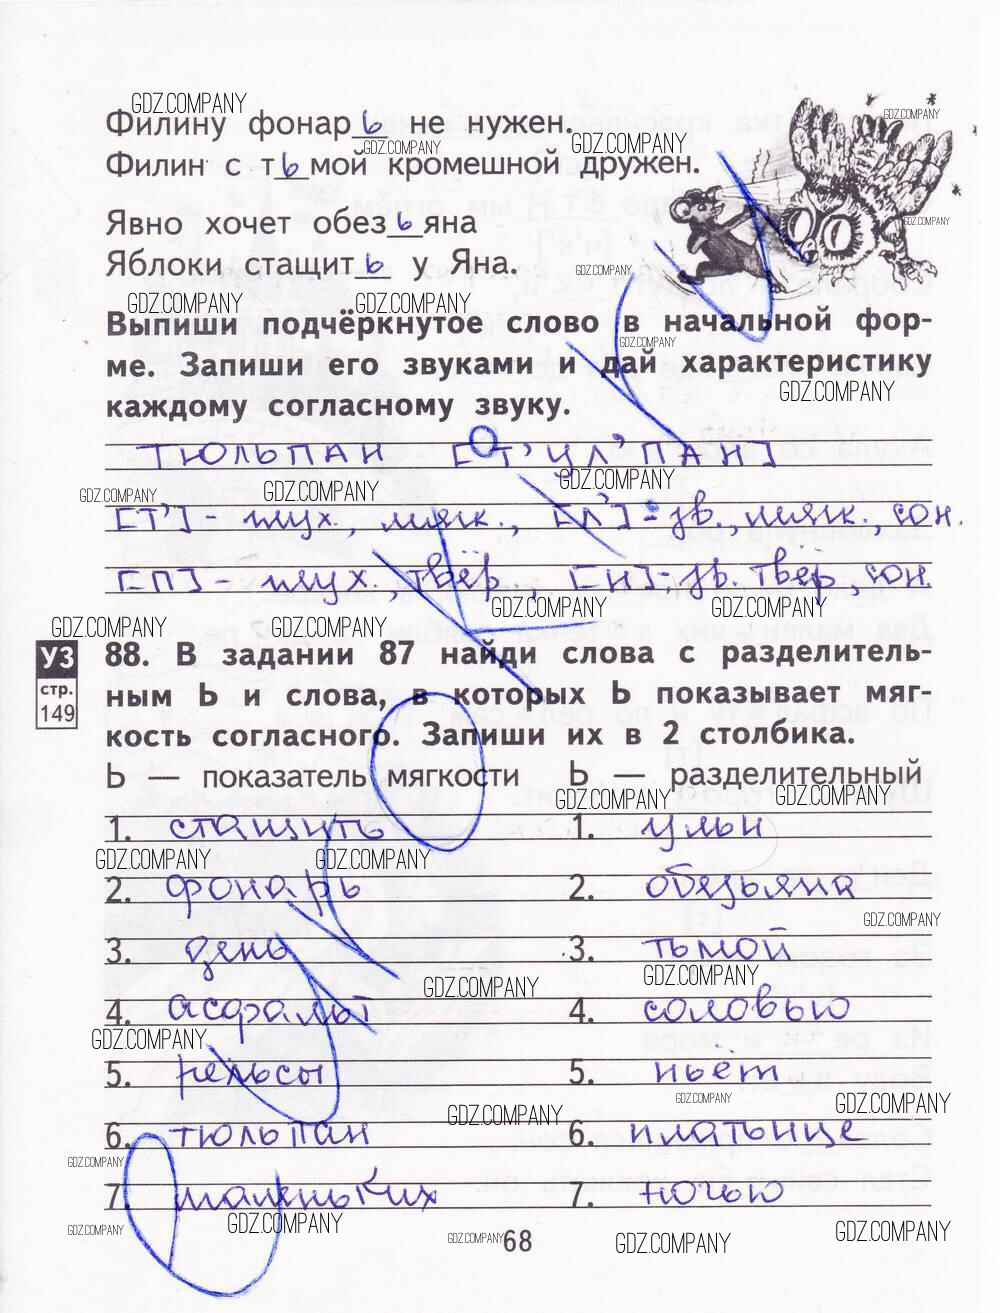 GDZ.COMPANY
GDZ.COMPANY
Филину фонарь не нужен.
GDZ.COMPANY
GDZ.COMPANY
Филин с тьмой кромешной дружен.
GDZ.COMPANY
Явно хочет обезьяна
Яблоки стащить у Яна.
GDZ.COMPANY
GDZ.COMPANY
GDZ.COMPANY
Выпиши подчёркнутое слово в начальной фор-
GDZ.COMPANY
ме. Запиши его звуками и дай характеристику
GDZ.COMPANY
каждому согласному звуку.
тюльпан [т'ул'пан]
GDZ.COMPANY
GDZ.COMPANY
GDZ.COMPANY
[т'] - глух., мягк., [л'] - зв., мягк., сон.
[п] - глух., твёр., [н] - зв. твёр, сон.
GDZ.COMPANY
GDZ.COMPANY
GDZ.COMPANY
GDZ.COMPANY
УЗ
стр.
149
88. В задании 87 найди слова с разделитель-
ным Ь и слова, в которых Ь показывает мяг-
кость согласного. Запиши их в 2 столбика.
Ь — показатель мягкости Ь — разделительный
GDZ.COMPANY
GDZ.COMPANY
1. стащить 1. ульи
GDZ.COMPANY
GDZ.COMPANY
2. фонарь 2. обезьяна
GDZ.COMPANY
3. день 3. тьмой
GDZ.COMPANY
GDZ.COMPANY
4. асфальт 4. соловью
GDZ.COMPANY
5. рельсы 5. пьёт
GDZ.COMPANY
GDZ.COMPANY
GDZ.COMPANY
6. тюльпан 6. платьице
GDZ.COMPANY
7. маленьких 7. ночью
GDZ.COMPANY
GDZ.COMPANY
GDZ.COMPANY
68
GDZ.COMPANY
GDZ.COMPANY